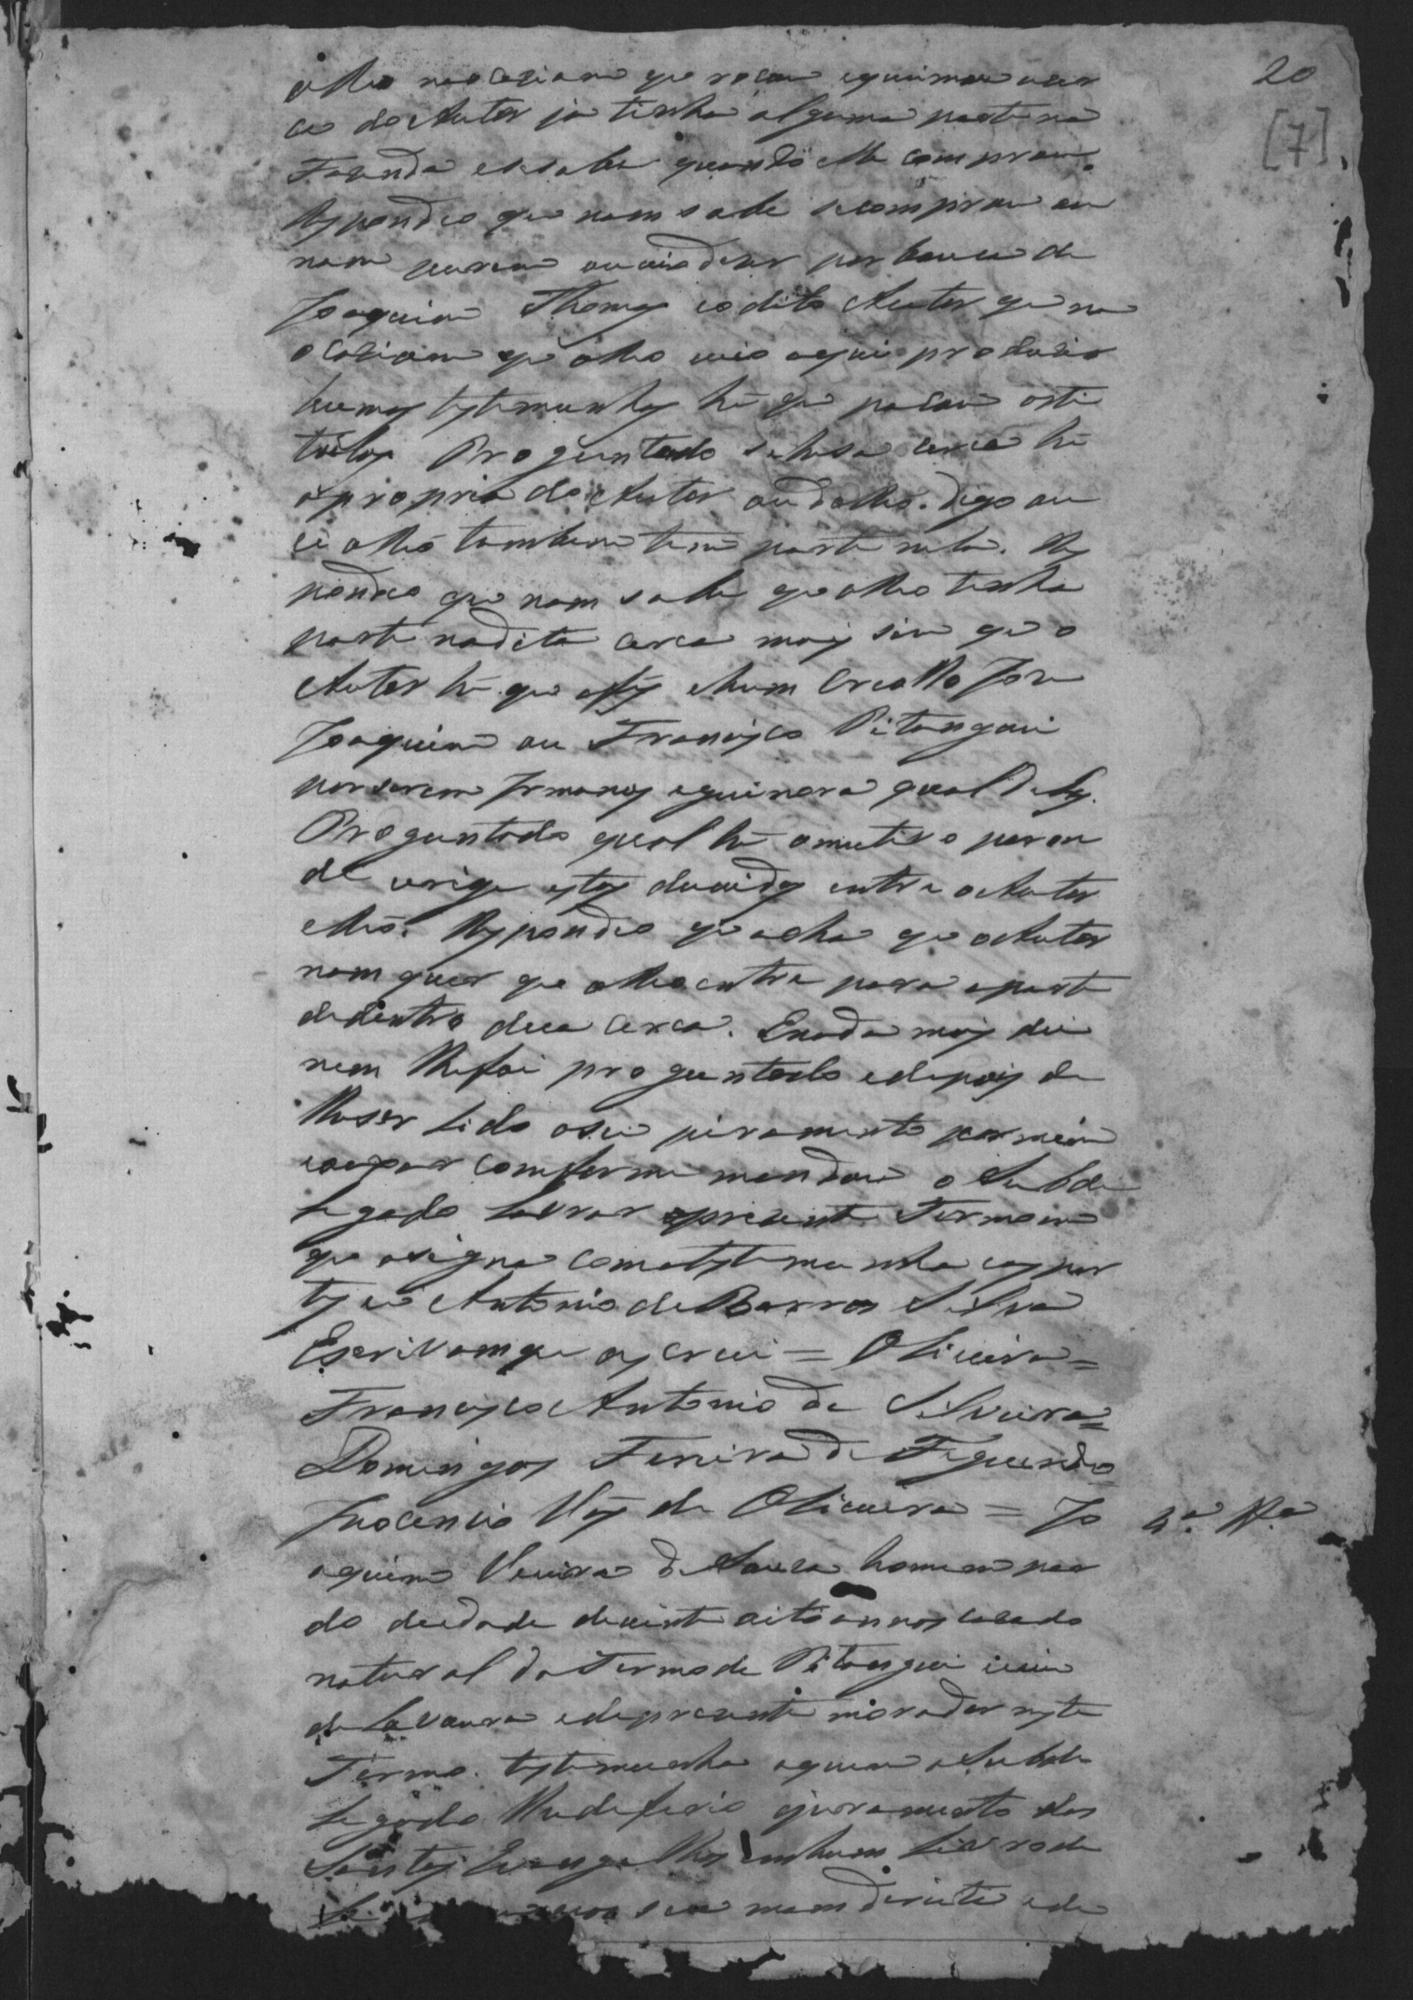 20
[7]
o Reo na ocasiam que rocou e queimou a cer
ca do Autor ja tinha alguma parte na
Fazenda e se sabe quando elle comprou.
Respondeo que nam sabe se comprou ou
nam porem ouvio dizer por boca de
Joaquim Thomas e o dito Autor que na
ocasiam que o Reo veio aqui produsir
humas testemunhas hé que pasou os ti
tulos Proguntado se hesa cerca hé
a propria do Autor ou do Reo. digo ou
se o Reo tambem tem parte nela. Res
pondeo que nam sabe que o Reo tinha
parte na dita cerca mas sim que o
Autor hé que a fez e hum Creollo José
Joaquim ou Francisco Pitangui
por serem Irmanos e ignora qual deles.
Proguntado qual hé o mutivo per on
de origem estas duvidas entre o Autor
e Reo. Respondeo que acha que o Autor
nam quer que o Reo entre para a parte
de dentro da sua cerca. E nada mais dise
nem lhe foi proguntado e depois de
lhe ser lido o seu juramento por mim
comforme mandou o Subde
legado lavrar o presente Termo em
que asigna com a testemunha e as par
tes eu Antonio de Barros Silva
Escrivam que o escrevi = Oliveira =
Francisco Antonio da Silveira =
Domingos Ferreira de Figueiredo
Inocencio Vas de Oliveira = Jo
4.a Ta
aquim Vieira de Souza homem par
do de idade de vinte oito annos casado
natural do Termo de Pitangui vive
de Lavoura e de presente morador neste
Termo. testemunha a quem o Subde
legado lhe deferio o juramento dos
Santos Evangelhos em hum Livro de
sua mam direita e de